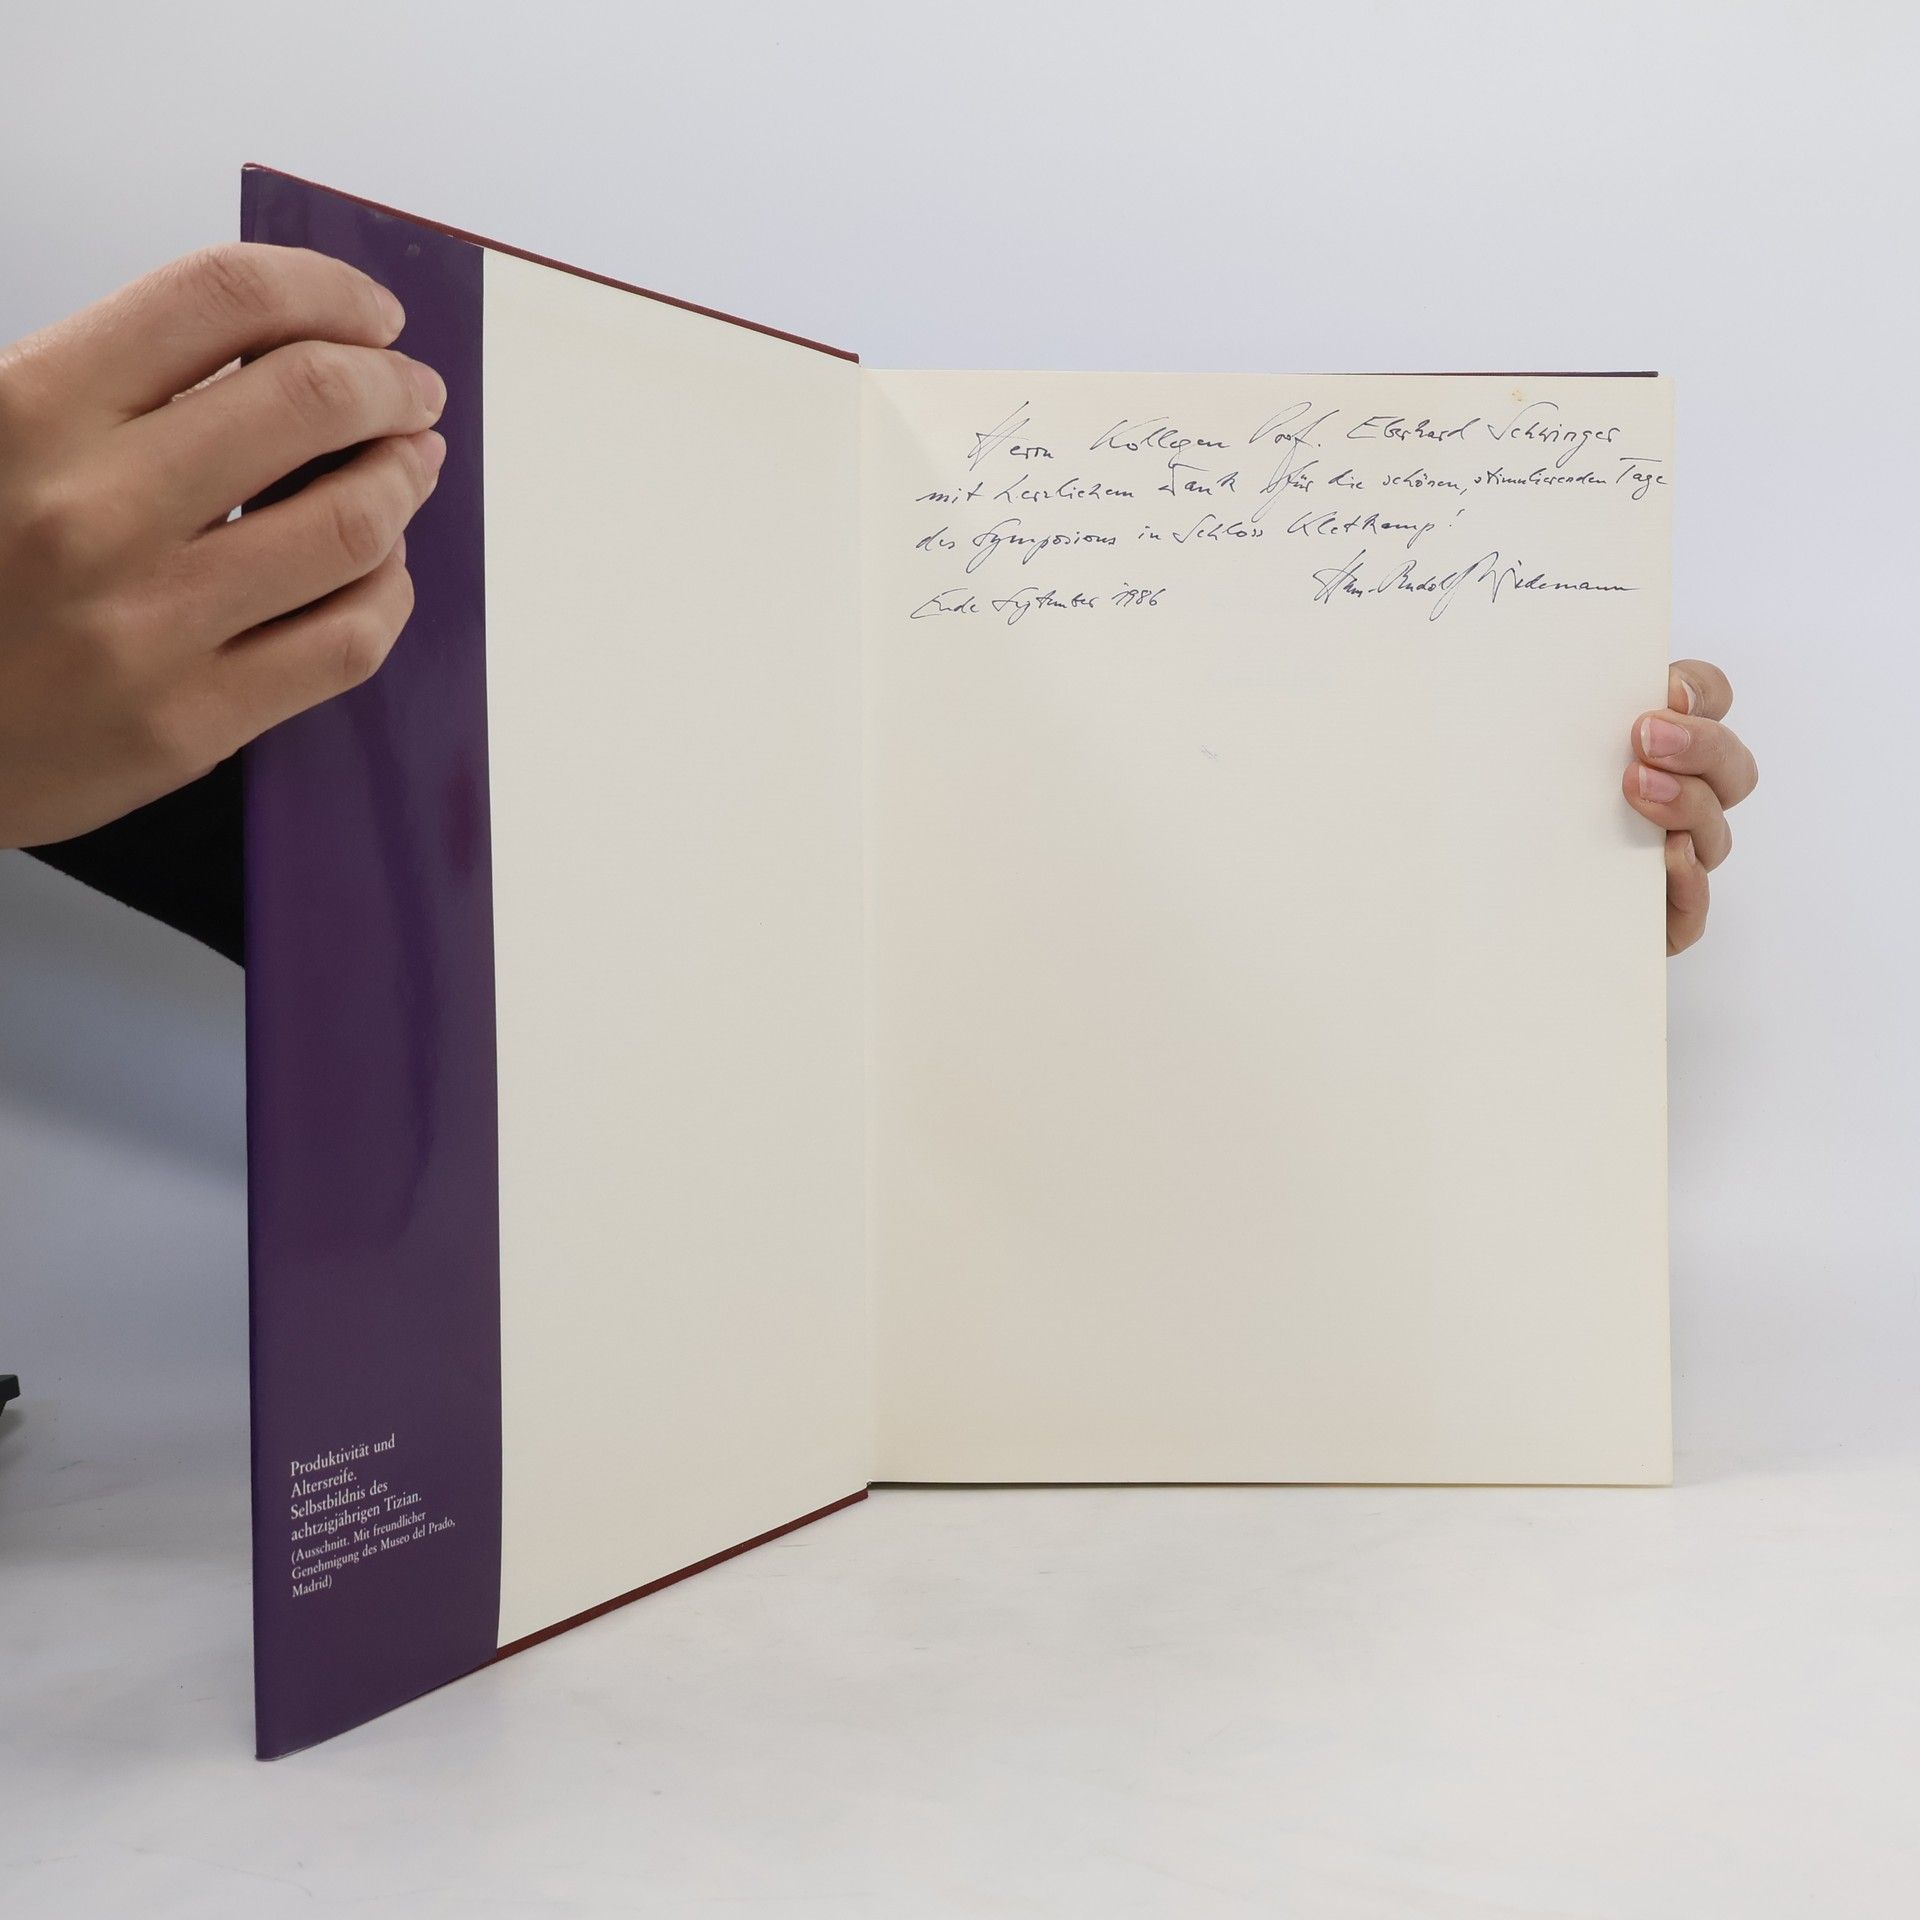 Herrn Kollegen Prof. Eberhard Schwinger
mit herzlichem Dank für die schönen, stimulierenden Tage
des Symposions in Schloss Kletkamp!
Ende September 1986
Hans-Rudolf Wiedemann
Produktivität und
Altersreife.
Selbstbildnis des
achtzigjährigen Tizian.
(Ausschnitt. Mit freundlicher
Genehmigung des Museo del Prado,
Madrid)